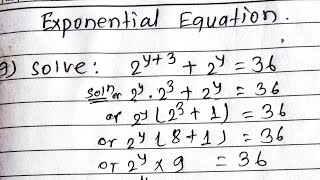 Exponential Equation.
9) solve: 2^{y+3} + 2^y = 36
soln or 2^y · 2^3 + 2^y = 36
or 2^y (2^3 + 1) = 36
or 2^y (8 + 1) = 36
or 2^y × 9 = 36